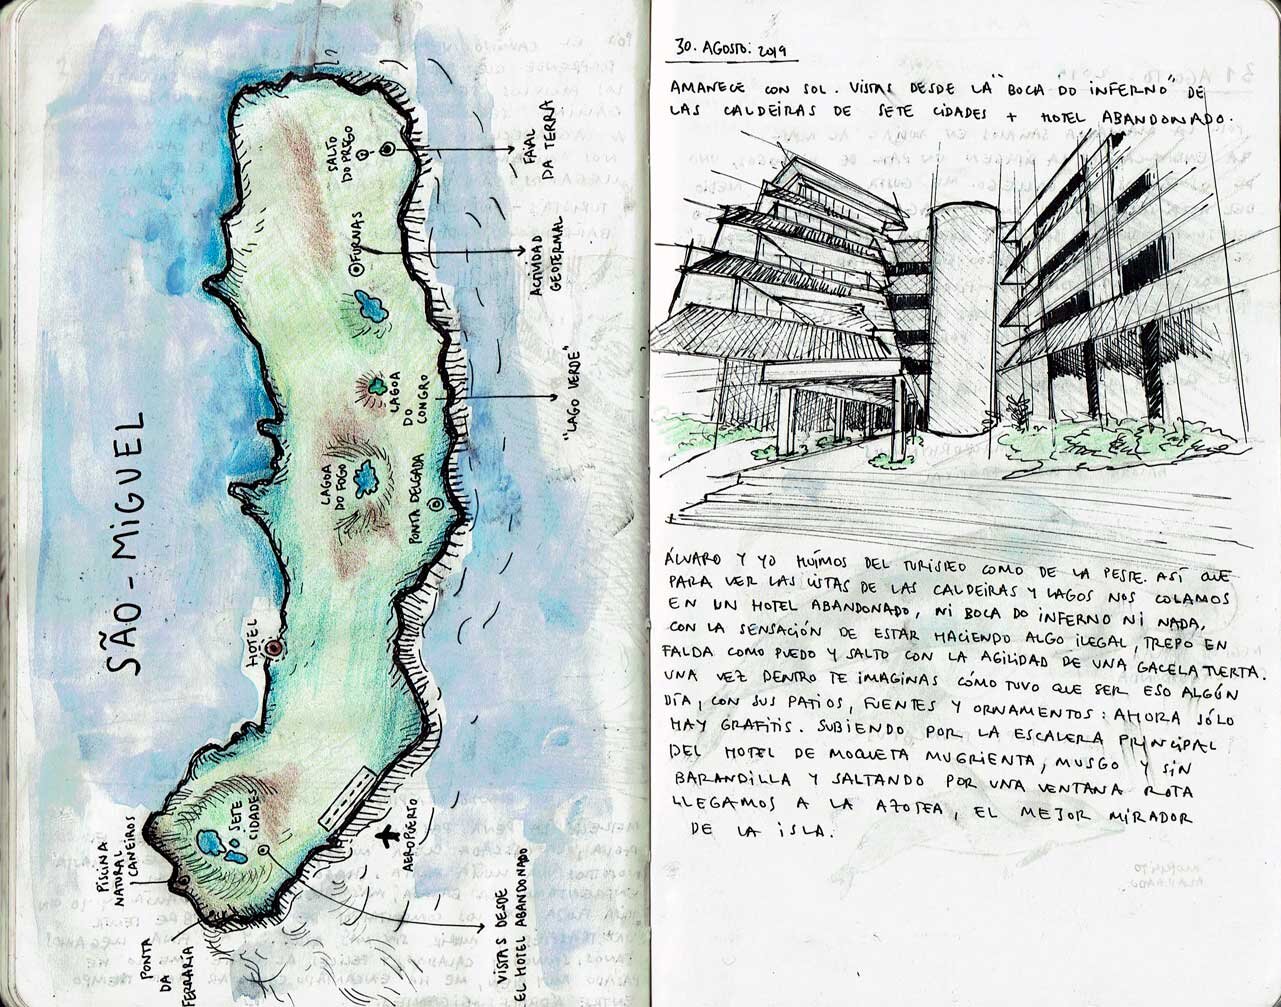 SÃO-MIGUEL
SALTO
DO PREGO
FAIAL
DA TERRA
FURNAS
ACTIVIDAD
GEOTERMAL
LAGOA
DO
CONGRO
"LAGO VERDE"
LAGOA
DO FOGO
PONTA DELGADA
HOTEL
SETE
CIDADES
AEROPUERTO
PISCINA
NATURAL
CANEIROS
PONTA
DA
FERRARIA
VISTAS DESDE
EL HOTEL ABANDONADO
30. AGOSTO. 2019
AMANECE CON SOL. VISTAS DESDE LA "BOCA DO INFERNO" DE
LAS CALDEIRAS DE SETE CIDADES + HOTEL ABANDONADO.
ÁLVARO Y YO HUÍMOS DEL TURISTEO COMO DE LA PESTE. ASÍ QUE
PARA VER LAS VISTAS DE LAS CALDEIRAS Y LAGOS NOS COLAMOS
EN UN HOTEL ABANDONADO, NI BOCA DO INFERNO NI NADA,
CON LA SENSACIÓN DE ESTAR HACIENDO ALGO ILEGAL, TREPO EN
FALDA COMO PUEDO Y SALTO CON LA AGILIDAD DE UNA GACELA TUERTA.
UNA VEZ DENTRO TE IMAGINAS CÓMO TUVO QUE SER ESO ALGÚN
DÍA, CON SUS PATIOS, FUENTES Y ORNAMENTOS: AHORA SÓLO
HAY GRAFITIS. SUBIENDO POR LA ESCALERA PRINCIPAL
DEL HOTEL DE MOQUETA MUGRIENTA, MUSGO Y SIN
BARANDILLA Y SALTANDO POR UNA VENTANA ROTA
LLEGAMOS A LA AZOTEA, EL MEJOR MIRADOR
DE LA ISLA.